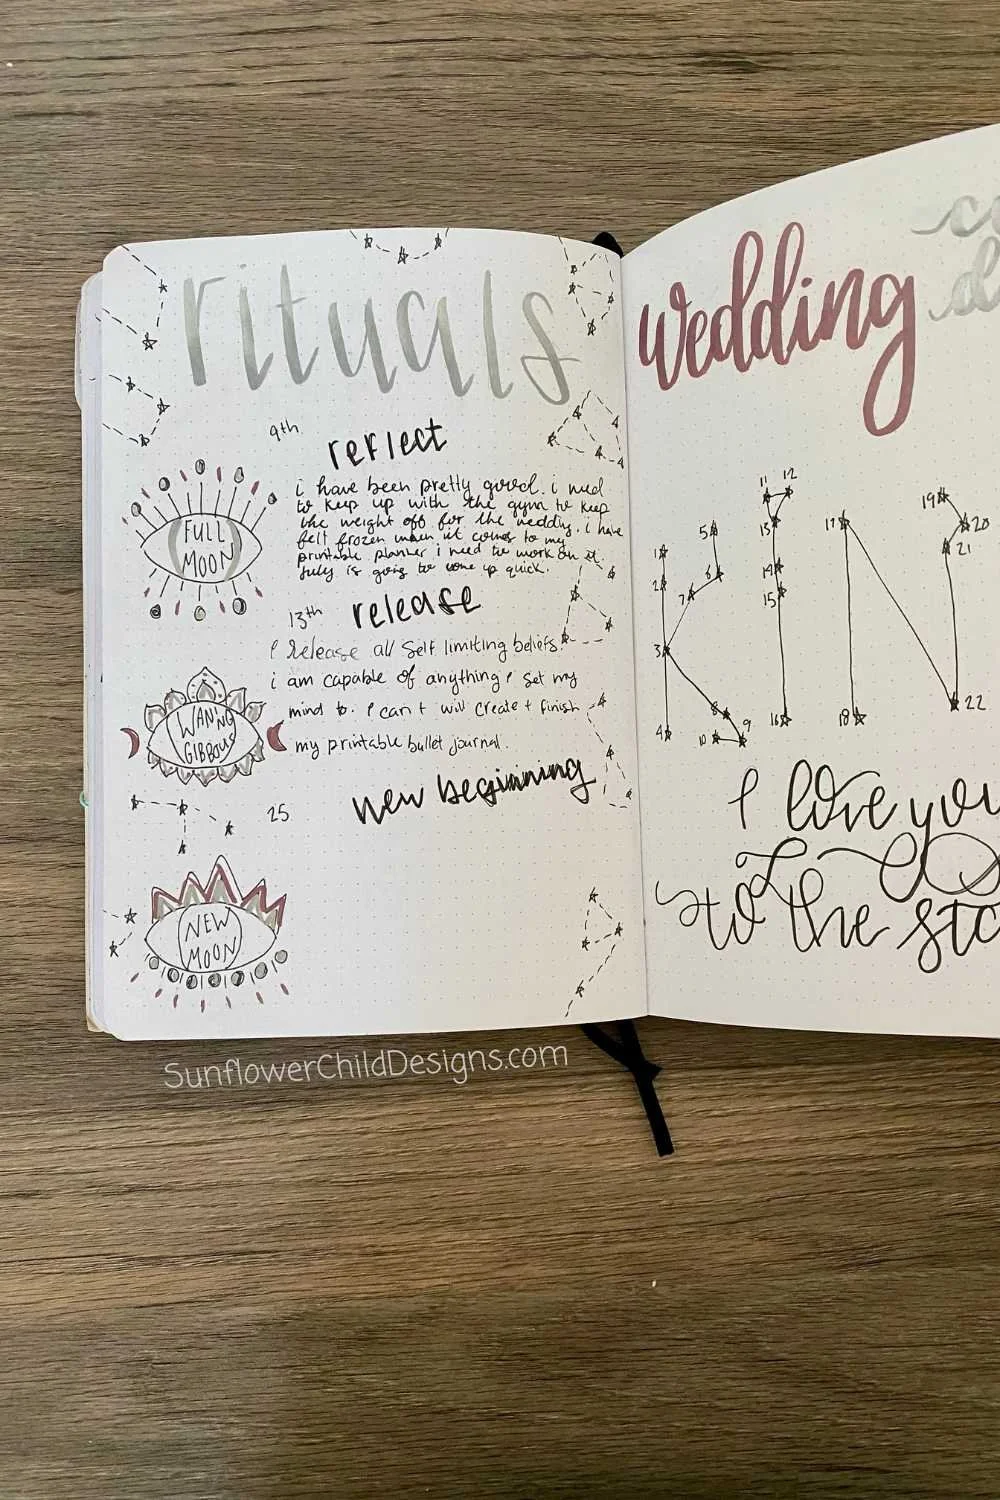 rituals
9th
reflect
FULL
MOON
i have been pretty good. i need
to keep up with the gym to keep
the weight off for the wedding. i have
felt frozen when it comes to my
printable planner i need to work on it.
July is going to come up quick.
13th
release
I release all self limiting beliefs.
i am capable of anything I set my
mind to. I can + will create + finish
my printable bullet journal.
WANING
GIBBOUS
25
new beginning
NEW
MOON
wedding
co
d
1
2
3
4
5
6
7
8
9
10
11
12
13
14
15
16
17
18
19
20
21
22
I love you
to the sta
SunflowerChildDesigns.com